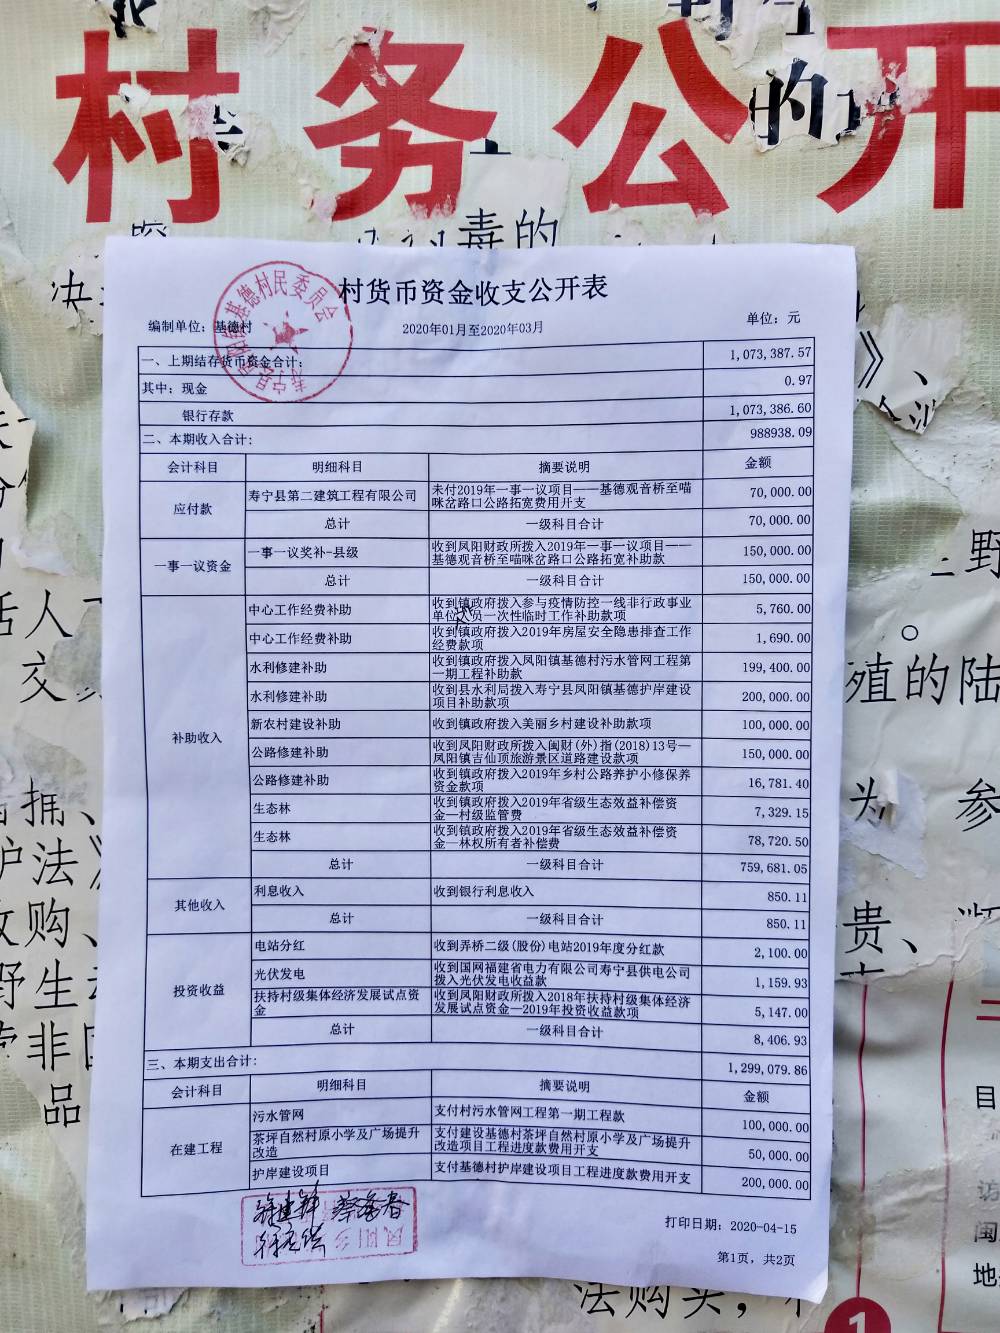 村务公开
的
毒的
村货币资金收支公开表
编制单位：基德村
2020年01月至2020年03月
单位：元
一、上期结存货币资金合计：
1,073,387.57
其中：现金
0.97
银行存款
1,073,386.60
二、本期收入合计：
988938.09
会计科目 明细科目 摘要说明 金额
应付款
寿宁县第二建筑工程有限公司
未付2019年一事一议项目——基德观音桥至喵
咪岔路口公路拓宽费用开支
70,000.00
总计 一级科目合计 70,000.00
一事一议资金
一事一议奖补-县级
收到凤阳财政所拨入2019年一事一议项目——
基德观音桥至喵咪岔路口公路拓宽补助款
150,000.00
总计 一级科目合计 150,000.00
补助收入
中心工作经费补助
收到镇政府拨入参与疫情防控一线非行政事业
单位人员一次性临时工作补助款项
5,760.00
中心工作经费补助
收到镇政府拨入2019年房屋安全隐患排查工作
经费款项
1,690.00
水利修建补助
收到镇政府拨入凤阳镇基德村污水管网工程第
一期工程补助款
199,400.00
水利修建补助
收到县水利局拨入寿宁县凤阳镇基德护岸建设
项目补助款项
200,000.00
新农村建设补助
收到镇政府拨入美丽乡村建设补助款项
100,000.00
公路修建补助
收到凤阳财政所拨入闽财(外)指(2018)13号—
凤阳镇吉仙顶旅游景区道路建设款项
150,000.00
公路修建补助
收到镇政府拨入2019年乡村公路养护小修保养
资金款项
16,781.40
生态林
收到镇政府拨入2019年省级生态效益补偿资
金—村级监管费
7,329.15
生态林
收到镇政府拨入2019年省级生态效益补偿资
金—林权所有者补偿费
78,720.50
总计 一级科目合计 759,681.05
其他收入
利息收入 收到银行利息收入 850.11
总计 一级科目合计 850.11
投资收益
电站分红 收到弄桥二级(股份)电站2019年度分红款 2,100.00
光伏发电
收到国网福建省电力有限公司寿宁县供电公司
拨入光伏发电收益款
1,159.93
扶持村级集体经济发展试点资
金
收到凤阳财政所拨入2018年扶持村级集体经济
发展试点资金—2019年投资收益款项
5,147.00
总计 一级科目合计 8,406.93
三、本期支出合计：
1,299,079.86
会计科目 明细科目 摘要说明 金额
在建工程
污水管网 支付村污水管网工程第一期工程款 100,000.00
茶坪自然村原小学及广场提升
改造
支付建设基德村茶坪自然村原小学及广场提升
改造项目工程进度款费用开支
50,000.00
护岸建设项目 支付基德村护岸建设项目工程进度款费用开支 200,000.00
打印日期：2020-04-15
第1页，共2页
决
野
活人
。
交
殖的陆
捐、
为
参
护法》
收购、
贵、
野生
非国
品
目
访
闽
地
法购买，
1